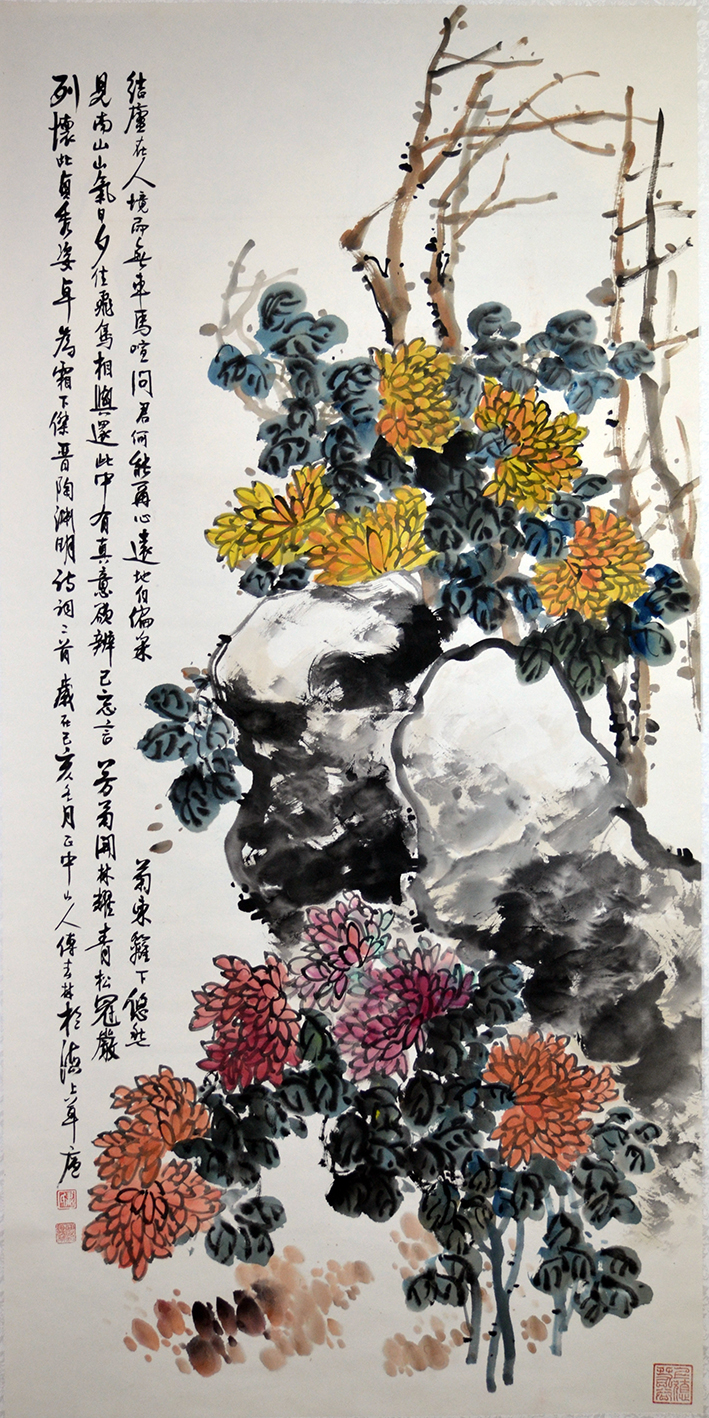 结廬在人境而無車馬喧问君何能爾心遠地自偏采菊東籬下悠然
見南山山氣日夕佳飛鳥相與還此中有真意欲辨已忘言芳菊開林耀青松冠巖
列懷此貞秀姿卓為霜下傑晋陶渊明詩詞二首歲在己亥冬月正中山人傅春林於海上草廬